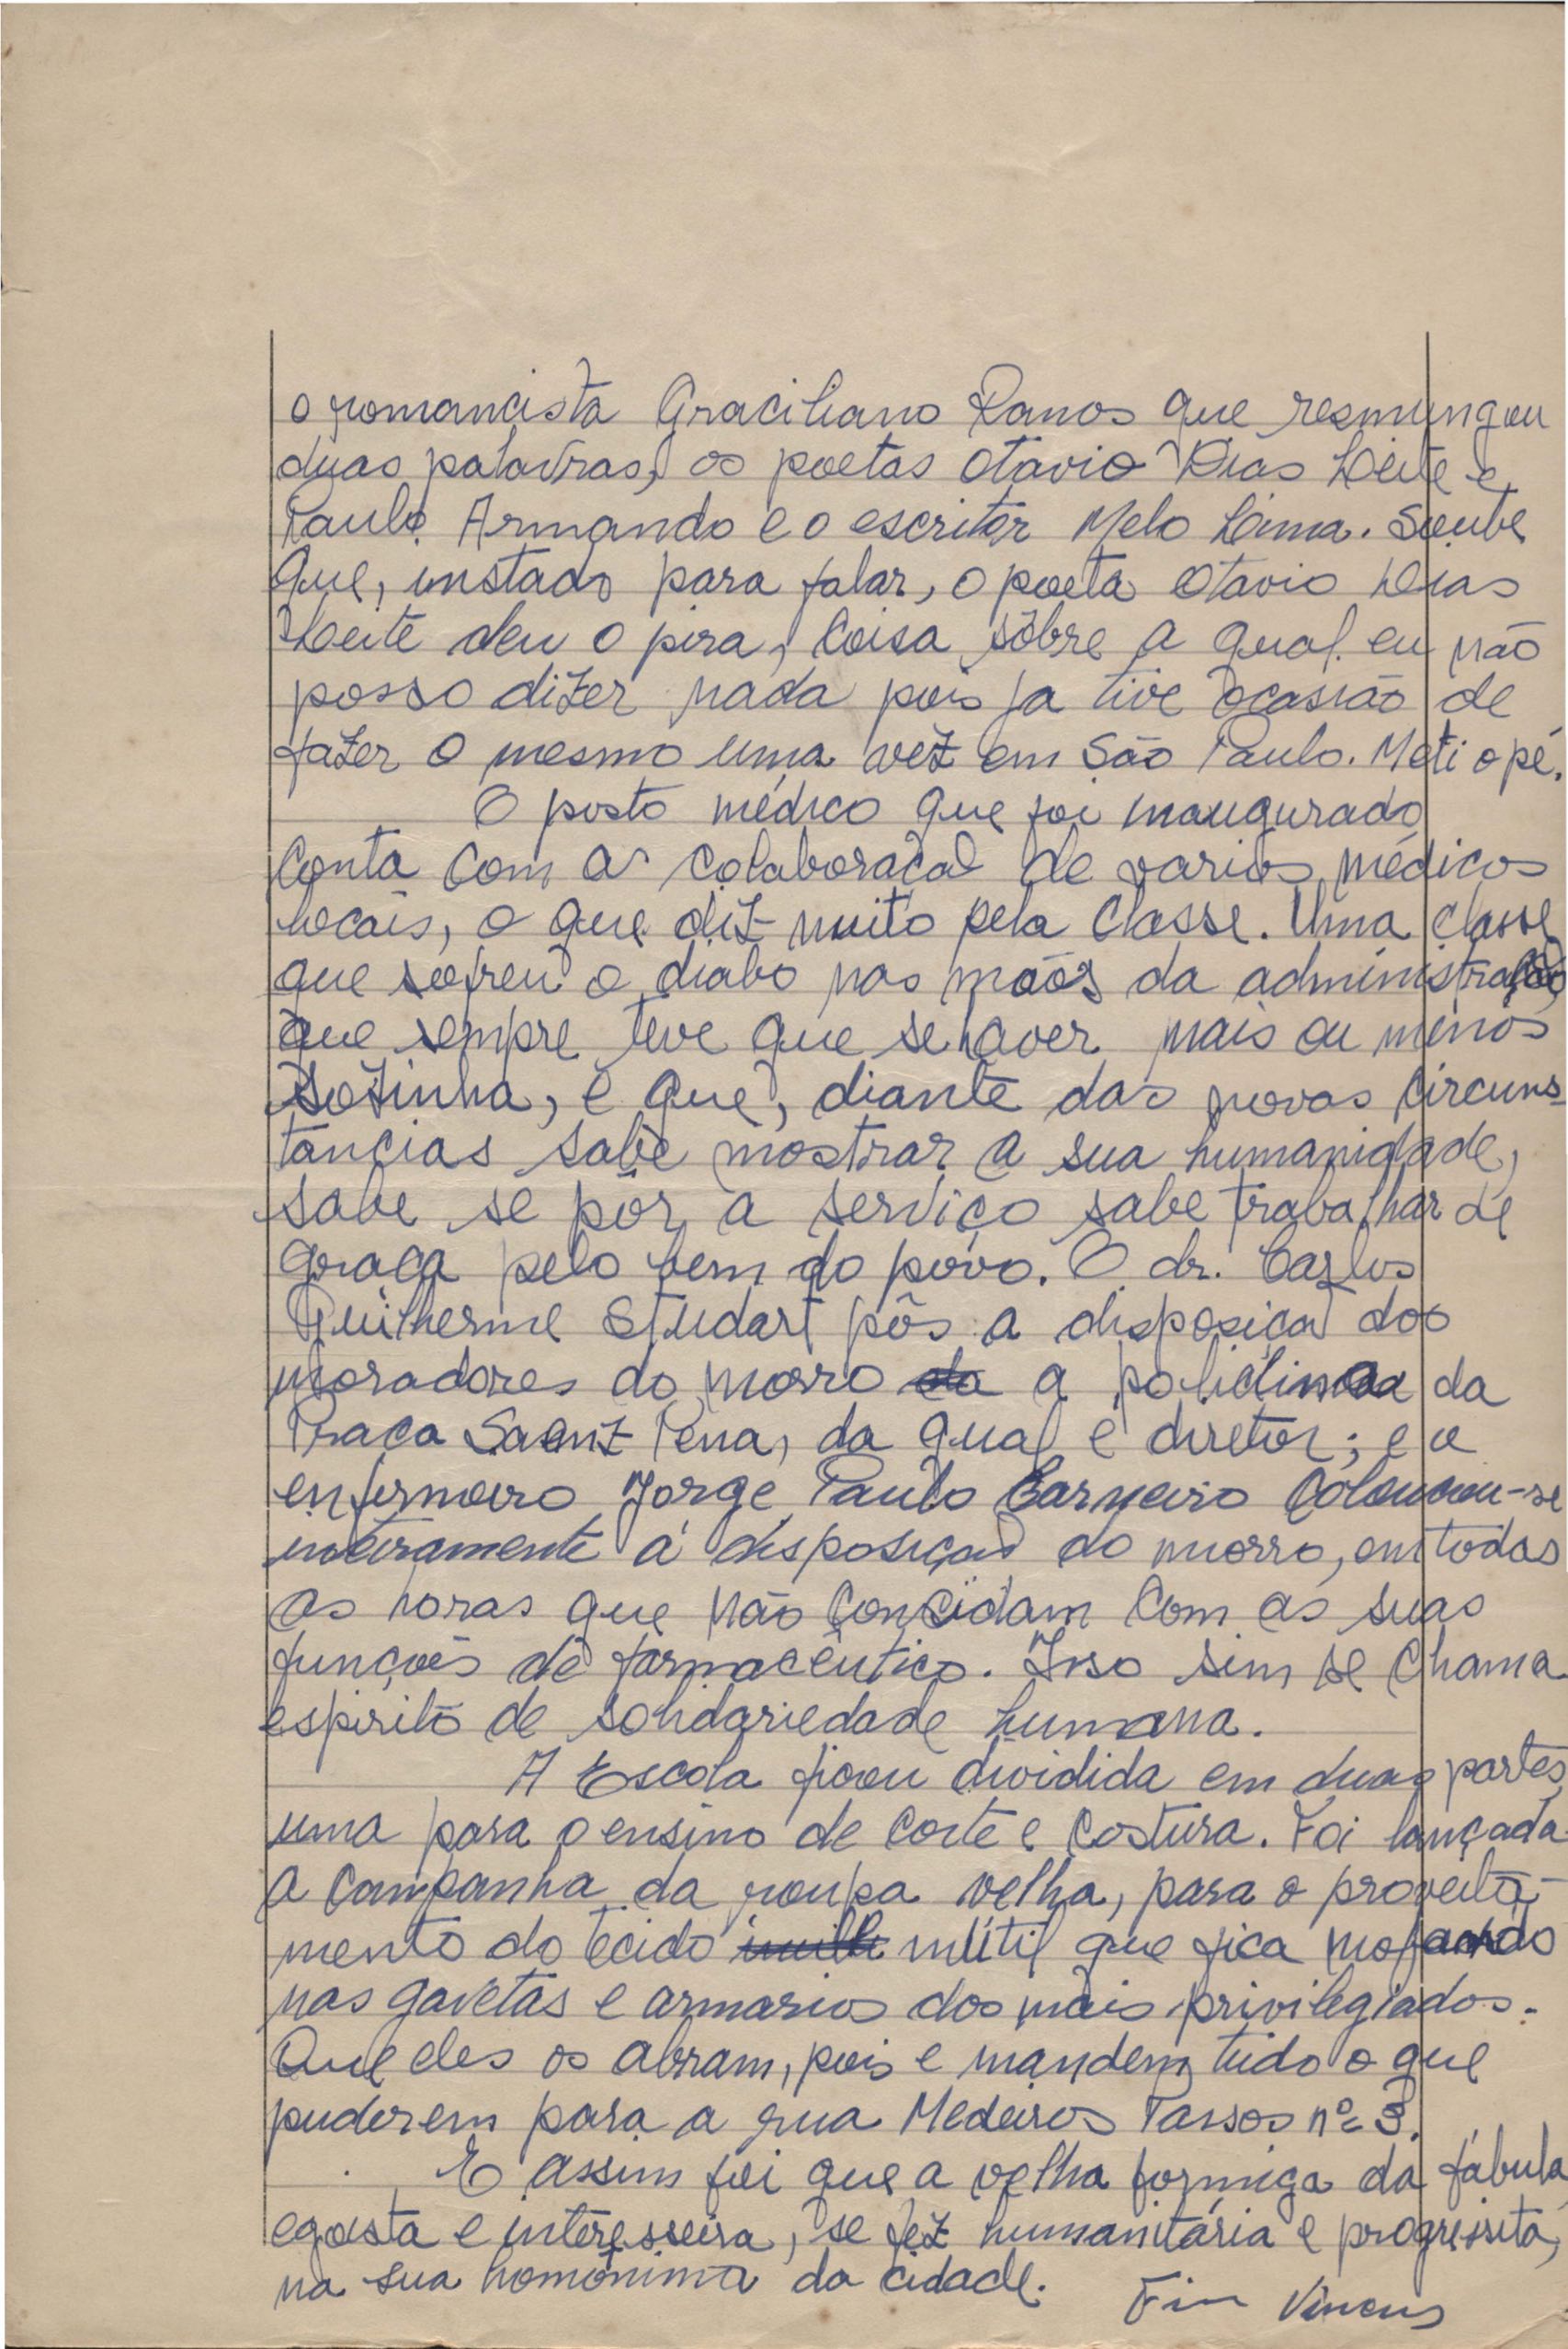 o romancista Graciliano Ramos que resmungou
duas palavras, os poetas Otavio Dias Leite e
Paulo Armando e o escritor Melo Lima. Soube
que, instado para falar, o poeta Otavio Dias
Leite deu o pira, coisa sôbre a qual eu não
posso dizer nada pois ja tive ocasião de
fazer o mesmo uma vez em São Paulo. Meti o pé.
O posto médico que foi inaugurado
conta com a colaboração de varios médicos
locais, o que diz muito pela classe. Uma classe
que sofreu o diabo nas mãos da administração
que sempre teve que se haver mais ou menos
sozinha, e que, diante das novas circuns-
tancias sabe mostrar a sua humanidade,
sabe se pôr a serviço sabe trabalhar de
graça pelo bem do povo. O dr. Carlos
Guilherme Studart pôs a disposição dos
moradores do morro da a policlinica da
Praça Saenz Pena, da qual é diretor; e o
enfermeiro Jorge Paulo Carneiro colocou-se
inteiramente á disposição do morro, em todas
as horas que não concidam com as suas
funções de farmacêutico. Isso sim se chama
espirito de solidariedade humana.
A Escola ficou dividida em duas partes,
uma para o ensino de corte e costura. Foi lançada
a campanha da roupa velha, para o proveita-
mento do tecido inútil que fica mofando
nas gavetas e armarios dos mais privilegiados.
Que eles os abram, pois e mandem tudo o que
puderem para a rua Medeiros Passos nº 3.
E assim foi que a velha formiga da fábula
egoista e interesseira, se fez humanitária e progressista,
na sua homônima da cidade.
Fim Vinicius